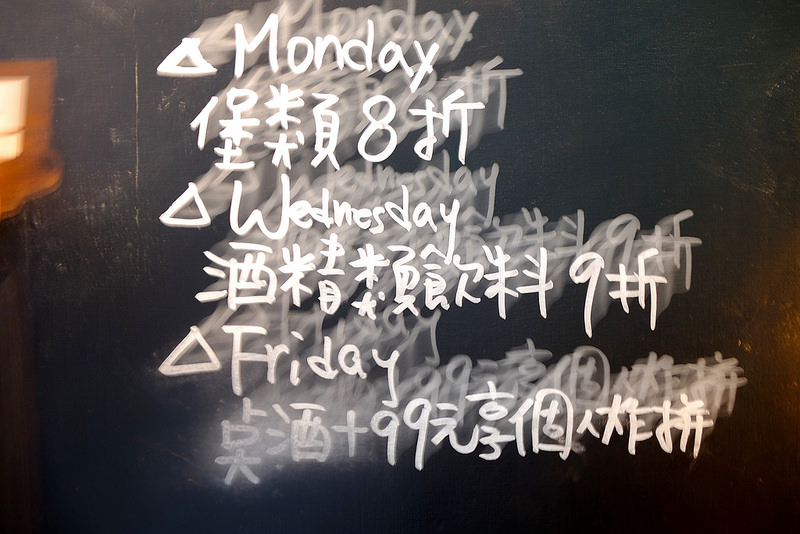 △ Monday
堡類8折
△ Wednesday
酒精類飲料9折
△ Friday
點酒+99元享個人炸拼